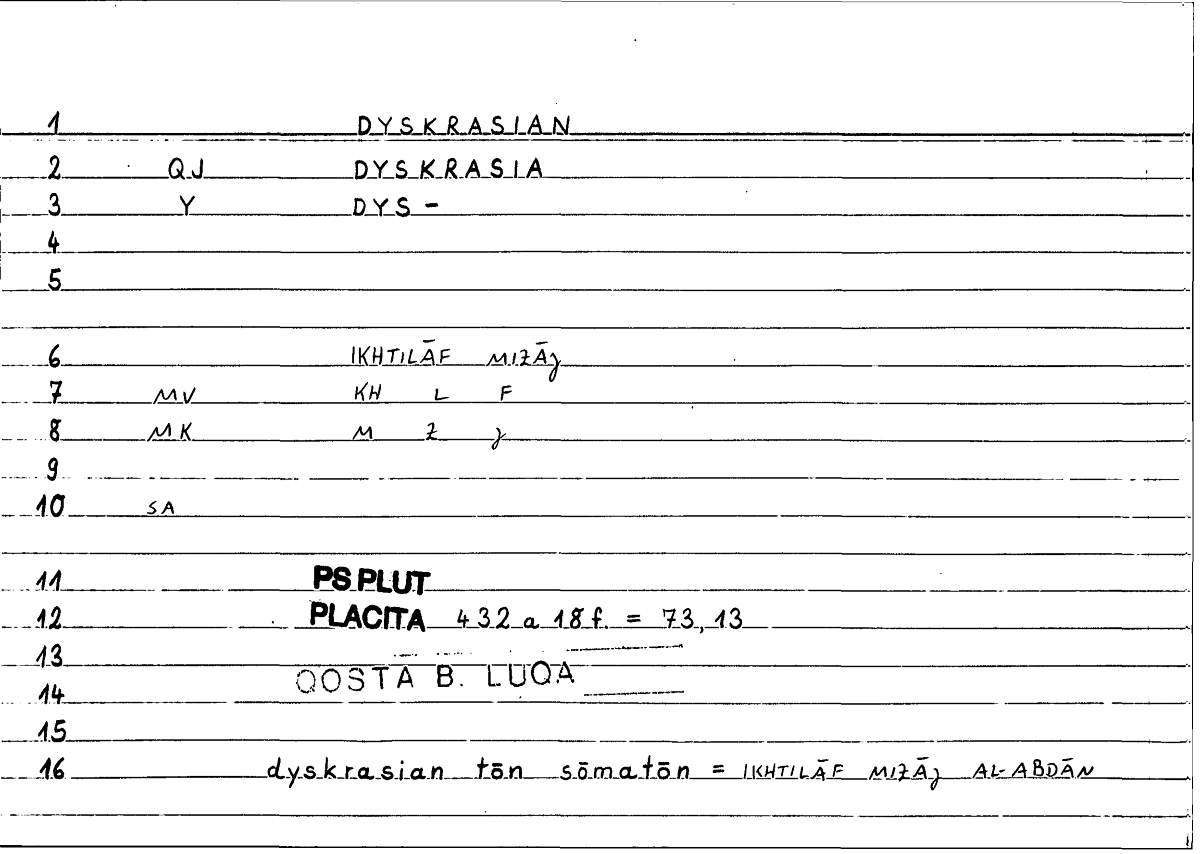 1 DYSKRASIAN
2 QJ DYSKRASIA
3 Y DYS-
4
5
6 IKHTILĀF MIZĀJ
7 MV KH L F
8 MK M Z J
9
10 SA
11 PS PLUT
12 PLACITA 432 a 18 f. = 73,13
13
QOSTA B. LUQA
14
15
16 dyskrasian tōn sōmatōn = IKHTILĀF MIZĀJ AL-ABDĀN